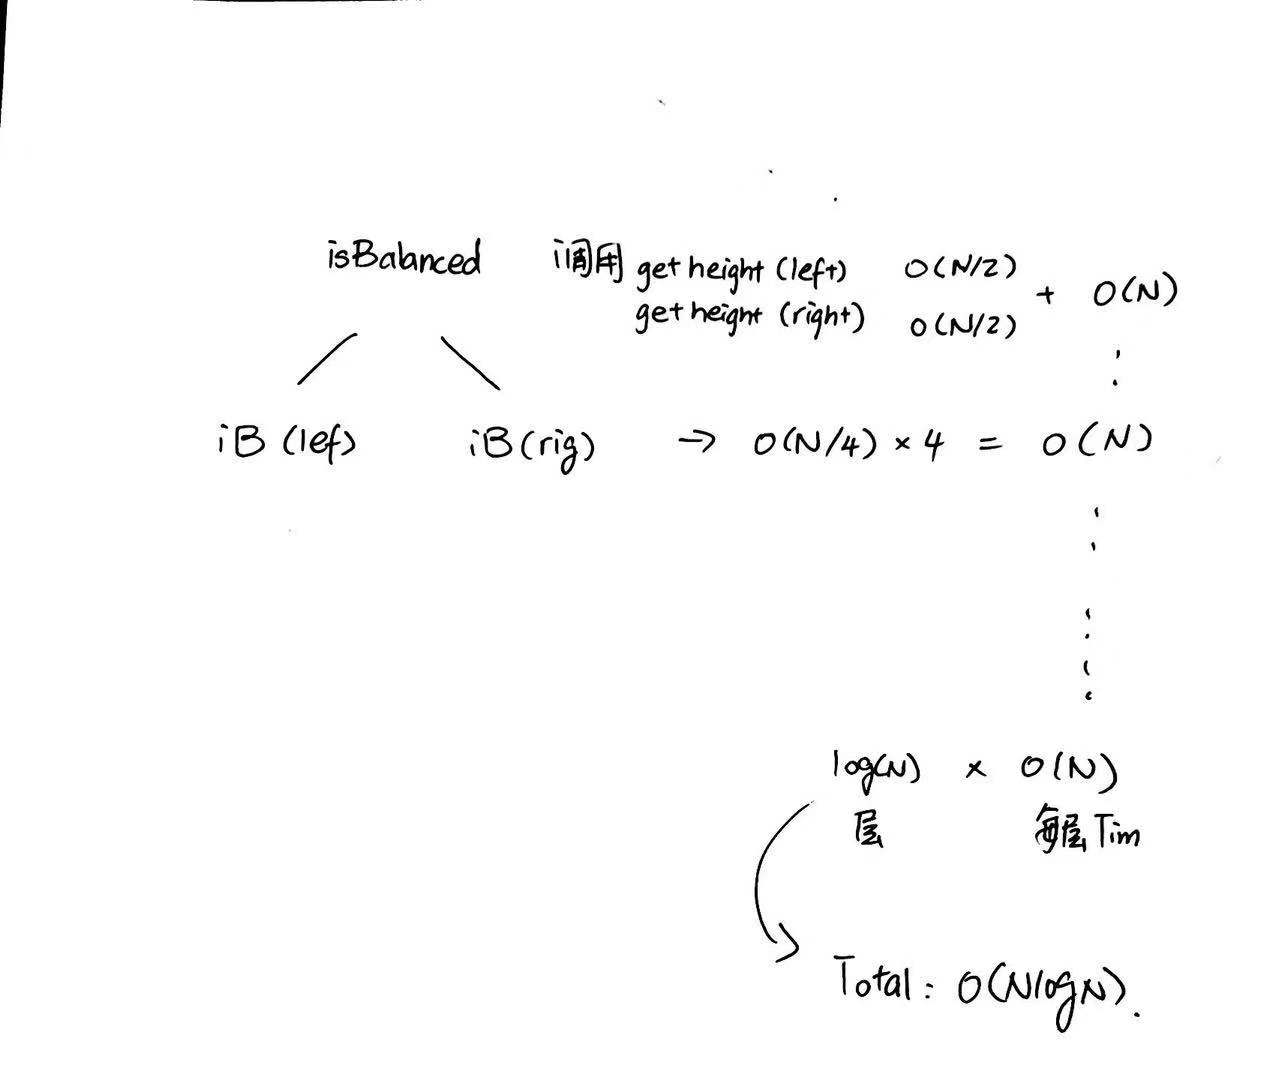 isBalanced 调用 get height (left) O(N/2)
get height (right) O(N/2) + O(N)
iB (lef) iB (rig) → O(N/4) × 4 = O(N)
log(N) × O(N)
层 每层 Tim
Total: O(NlogN).